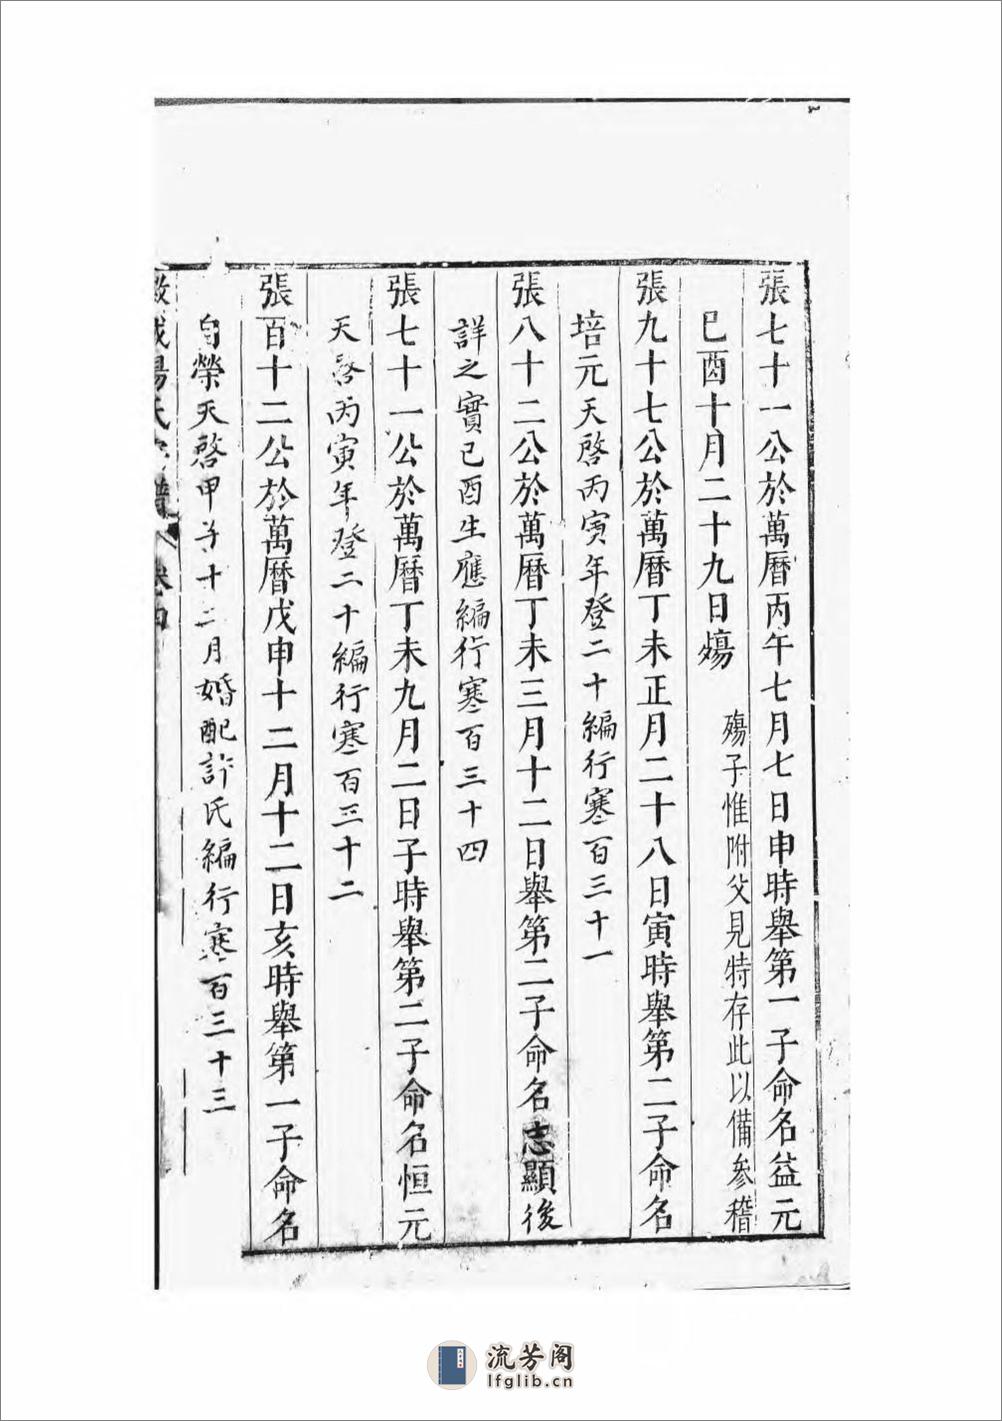 張七十一公於萬曆丙午七月七日申時舉第一子命名益元
己酉十月二十九日殤 殤子惟附父見特存此以備參稽
張九十七公於萬曆丁未正月二十八日寅時舉第二子命名
培元天啓丙寅年登二十編行寒百三十一
張八十二公於萬曆丁未三月十二日舉第二子命名志顯後
詳之實己酉生應編行寒百三十四
張七十一公於萬曆丁未九月二日子時舉第二子命名恒元
天啓丙寅年登二十編行寒百三十二
張百十二公於萬曆戊申十二月十二日亥時舉第一子命名
自榮天啓甲子十二月婚配許氏編行寒百三十三
流芳阁
lfglib.cn